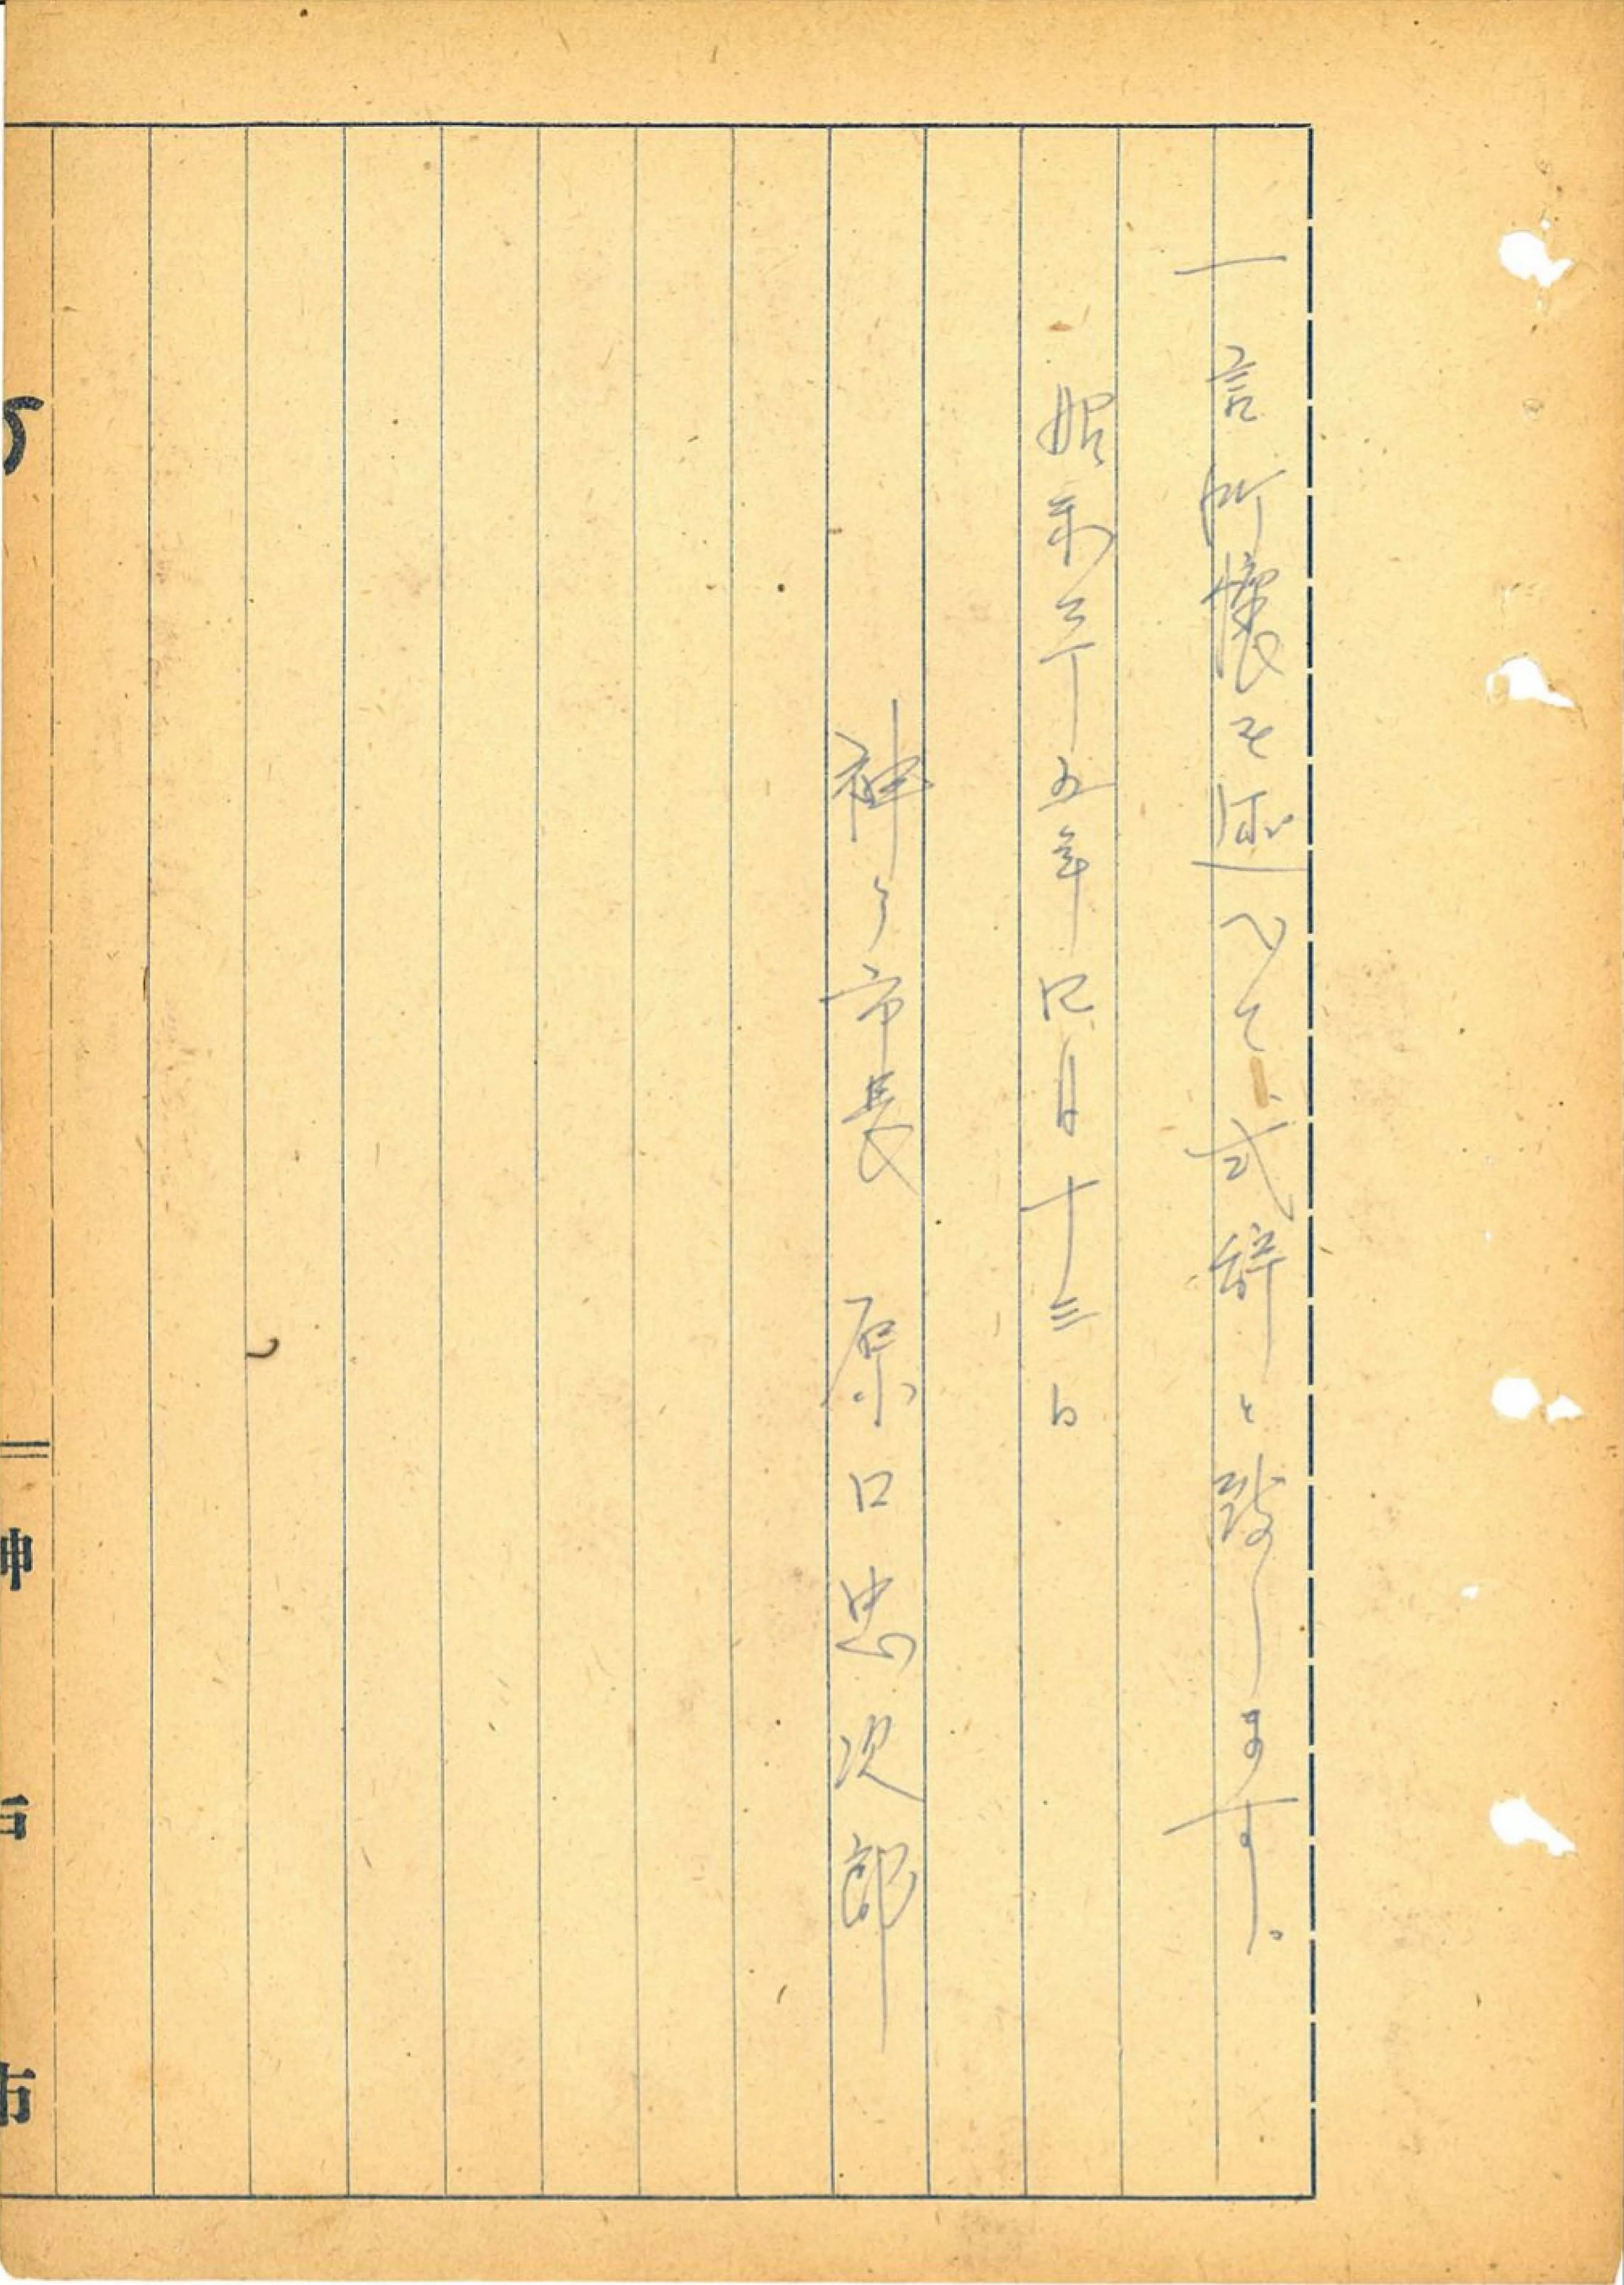 一言所懐を述べて、式辞と致します。
昭和二十五年四月十三日
神戸市長 原口忠次郎
神戸市